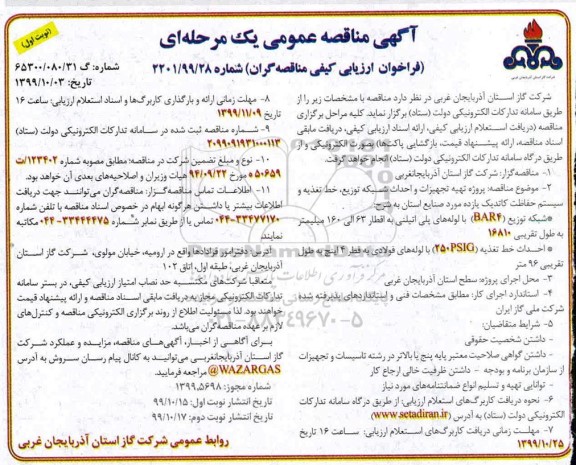 آگهی مناقصه عمومی یک مرحله‌ای
(نوبت اول)
(فراخوان ارزیابی کیفی مناقصه‌گران) شماره ۲۲۰۱/۹۹/۲۸
شماره: گ ۶۵۳۰۰/۰۸۰/۳۱
تاریخ: ۱۳۹۹/۱۰/۰۳
شرکت گاز استان آذربایجان غربی در نظر دارد مناقصه با مشخصات زیر را از
طریق سامانه تدارکات الکترونیکی دولت (ستاد) برگزار نماید. کلیه مراحل برگزاری
مناقصه (دریافت استعلام ارزیابی کیفی، ارائه اسناد ارزیابی کیفی، دریافت مابقی
اسناد مناقصه، ارائه پیشنهاد قیمت، بازگشایی پاکت‌ها) بصورت الکترونیکی و از
طریق درگاه سامانه تدارکات الکترونیکی دولت (ستاد) انجام خواهد گرفت.
۱- مناقصه‌گزار: شرکت گاز استان آذربایجانغربی
۲- موضوع مناقصه: پروژه تهیه تجهیزات و احداث شبکه توزیع، خط تغذیه و
سیستم حفاظت کاتدیک یازده مورد صنایع استان به شرح
شبکه توزیع (BAR۴) با لوله‌های پلی اتیلنی به اقطار ۶۳ الی ۱۶۰ میلیمتر
به طول تقریبی ۱۶۸۱۰
احداث خط تغذیه (۲۵۰PSIG) با لوله‌های فولادی به قطر ۴ اینچ به طول
تقریبی ۹۶ متر
۳- محل اجرای پروژه: سطح استان آذربایجان غربی
۴- استاندارد اجرای کار: مطابق مشخصات فنی و استانداردهای پذیرفته شده
شرکت ملی گاز ایران
۵- شرایط متقاضیان:
- داشتن شخصیت حقوقی
- داشتن گواهی صلاحیت معتبر پایه پنج یا بالاتر در رشته تاسیسات و تجهیزات
از سازمان برنامه و بودجه - داشتن ظرفیت خالی ارجاع کار
- توانایی تهیه و تسلیم انواع ضمانتنامه‌های مورد نیاز
۶- نحوه دریافت کاربرگ‌های استعلام ارزیابی: از طریق درگاه سامانه تدارکات
الکترونیکی دولت (ستاد) به آدرس (www.setadiran.ir)
۷- مهلت زمانی دریافت کاربرگ‌های استعلام ارزیابی: ساعت ۱۶ تاریخ
۱۳۹۹/۱۰/۲۵
۸- مهلت زمانی ارائه و بارگذاری کاربرگ‌ها و اسناد استعلام ارزیابی: ساعت ۱۶
تاریخ ۱۳۹۹/۱۱/۰۹
۹- شماره مناقصه ثبت شده در سامانه تدارکات الکترونیکی دولت (ستاد)
۲۰۹۹۰۹۱۹۳۱۰۰۰۱۱۳
۱۰- نوع و مبلغ تضمین شرکت در مناقصه: مطابق مصوبه شماره ۱۲۳۴۰۲/ت
۵۰۶۵۹ه مورخ ۹۴/۰۹/۲۲ هیات وزیران و اصلاحیه‌های بعدی آن خواهد بود.
۱۱- اطلاعات تماس مناقصه‌گزار: مناقصه‌گران می‌توانند جهت دریافت
اطلاعات بیشتر یا داشتن هرگونه ابهام در خصوص اسناد مناقصه با تلفن شماره
۰۴۴-۳۳۴۷۷۱۷۰ تماس یا از طریق نمابر شماره ۰۴۴-۳۳۴۴۴۴۷۵ مکاتبه
نمایند
آدرس: دفتر امور قراردادها واقع در ارومیه، خیابان مولوی، شرکت گاز استان
آذربایجان غربی، طبقه اول، اتاق ۱۰۲
متعاقبا شرکت‌های مکتسبه حد نصاب امتیاز ارزیابی کیفی، در بستر سامانه
تدارکات الکترونیکی مجاز به دریافت مابقی اسناد مناقصه و ارائه پیشنهاد قیمت
خواهند بود. لذا مسئولیت اطلاع از روند برگزاری الکترونیکی مناقصه و کنترل‌های
لازم بر عهده مناقصه‌گران می‌باشد.
برای آگاهی از اخبار، آگهی‌های مناقصه، مزایده و عملکرد شرکت
گاز استان آذربایجانغربی می‌توانید به کانال پیام رسان سروش به آدرس
@WAZARGAS مراجعه فرمایید.
شماره مجوز: ۱۳۹۹.۵۶۹۸
تاریخ انتشار نوبت اول: ۹۹/۱۰/۱۵
تاریخ انتشار نوبت دوم: ۹۹/۱۰/۱۷
روابط عمومی شرکت گاز استان آذربایجان غربی